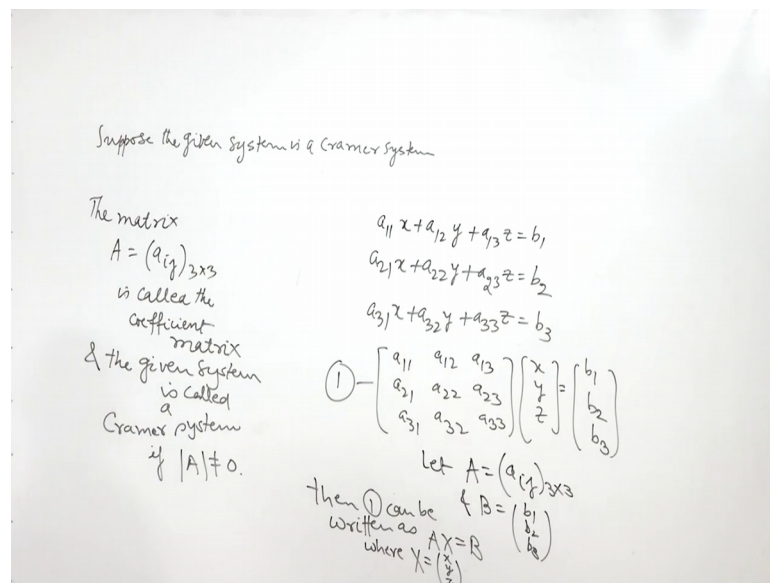 Suppose the given system is a Cramer system
The matrix
A = (aij)3x3
is called the
coefficient
matrix
& the given system
is called
a
Cramer system
if |A| ≠ 0.
a11 x + a12 y + a13 z = b1
a21 x + a22 y + a23 z = b2
a31 x + a32 y + a33 z = b3
① — [a11 a12 a13] [x] = [b1]
[a21 a22 a23] [y] [b2]
[a31 a32 a33] [z] [b3]
Let A = (aij)3x3
& B = (b1 b2 b3)
then ① can be
written as AX = B
where X = (x y z)